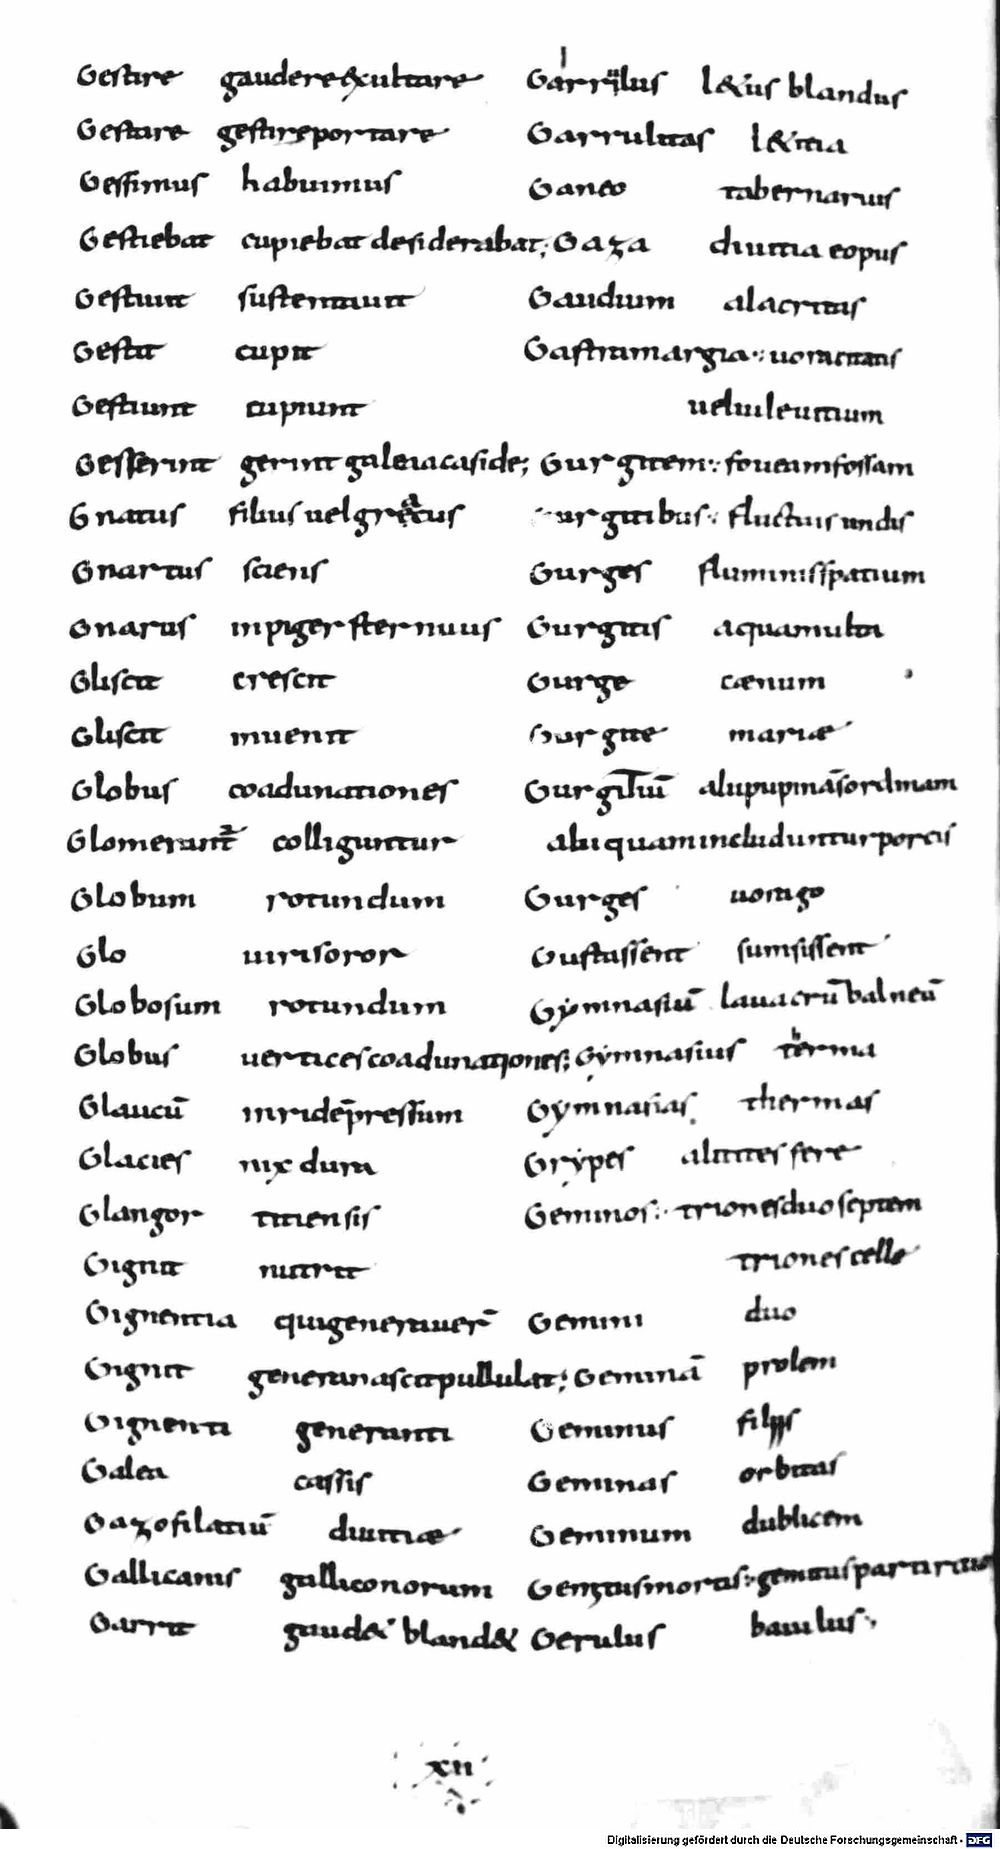 Gestire gaudere &xultare
Gestare gestire portare
Gessimus habuimus
Gestiebat cupiebat desiderabat;
Gestiunt sustentaunt
Gestit cupit
Gestiunt cupiunt
Gesserint gerint galeia caside;
Gnatus filius uel gr&atus
Gnartus sciens
Gnarus inpiger sternuus
Gliscit crescit
Gliscit inuenit
Globus coadunationes
Glomerant colliguntur
Globum rotundum
Glo uiri soror
Globosum rotundum
Globus uertices coadunationes;
Glaucū uiride p̄ressum
Glacies nix dura
Glangor titiensis
Gignit nutrit
Gignentia qui generauer̄
Gignit generat nascit pullulat;
Gignenti generanti
Galea cassis
Gazofilatiū diuitiæ
Gallicanis galliconorum
Garrit gaud& bland&
Garrulus l&us blandus
Garrulitas l&itia
Ganeo tabernarius
Gaza diuitia eopus
Gaudium alacritas
Gastramargia uoracitans
uel uileuitium
Gurgitem foueam fossam
urgitibus fluctuis undis
Gurges fluminis spatium
Gurgitis aqua multa
Gurge cænum
Gurgite mariæ
alii
aliquam includuntur porcis
Gurges uorago
Gustassent sumsissent
Gymnasiū lauacrū balneū
Gymnasius therma
Gymnasias thermas
Grypes alites fere
Geminos triones duo septem
triones celle
Gemini duo
Geminā prolem
Geminus filiis
Geminas orbitas
Geminum dublicem
gemitus
Gerulus baiulus
xii
Digitalisierung gefördert durch die Deutsche Forschungsgemeinschaft - DFG